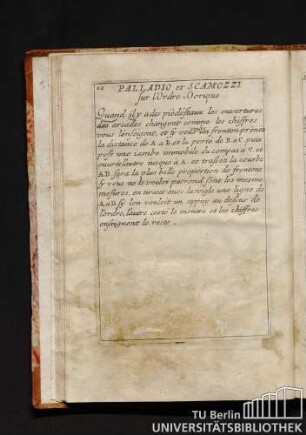 PALLADIO et SCAMOZZI
sur l'Ordre Dorique
Quand il y a des piédéstaux les ouvertures
des arcades changent comme les chiffres
vous l'enseignent, et sy vous un fronton prenez
la distance de A. a B. et la porté de B. a C. puis
posé une jambe immobile du compas a C. et
ouvrés lautre jusques à A. et trassés la courbe
A.D. sera la plus belle proportion de frontons
sy vous ne le voulez pas rond sont les mesme
mesures, en tirant avec la regle une ligne de
A. a D. sy lon vouloit un appuy au dessus de
l'ordre, lautre costé le montre et les chiffres
enseignent le reste.
TU Berlin
UNIVERSITÄTSBIBLIOTHEK